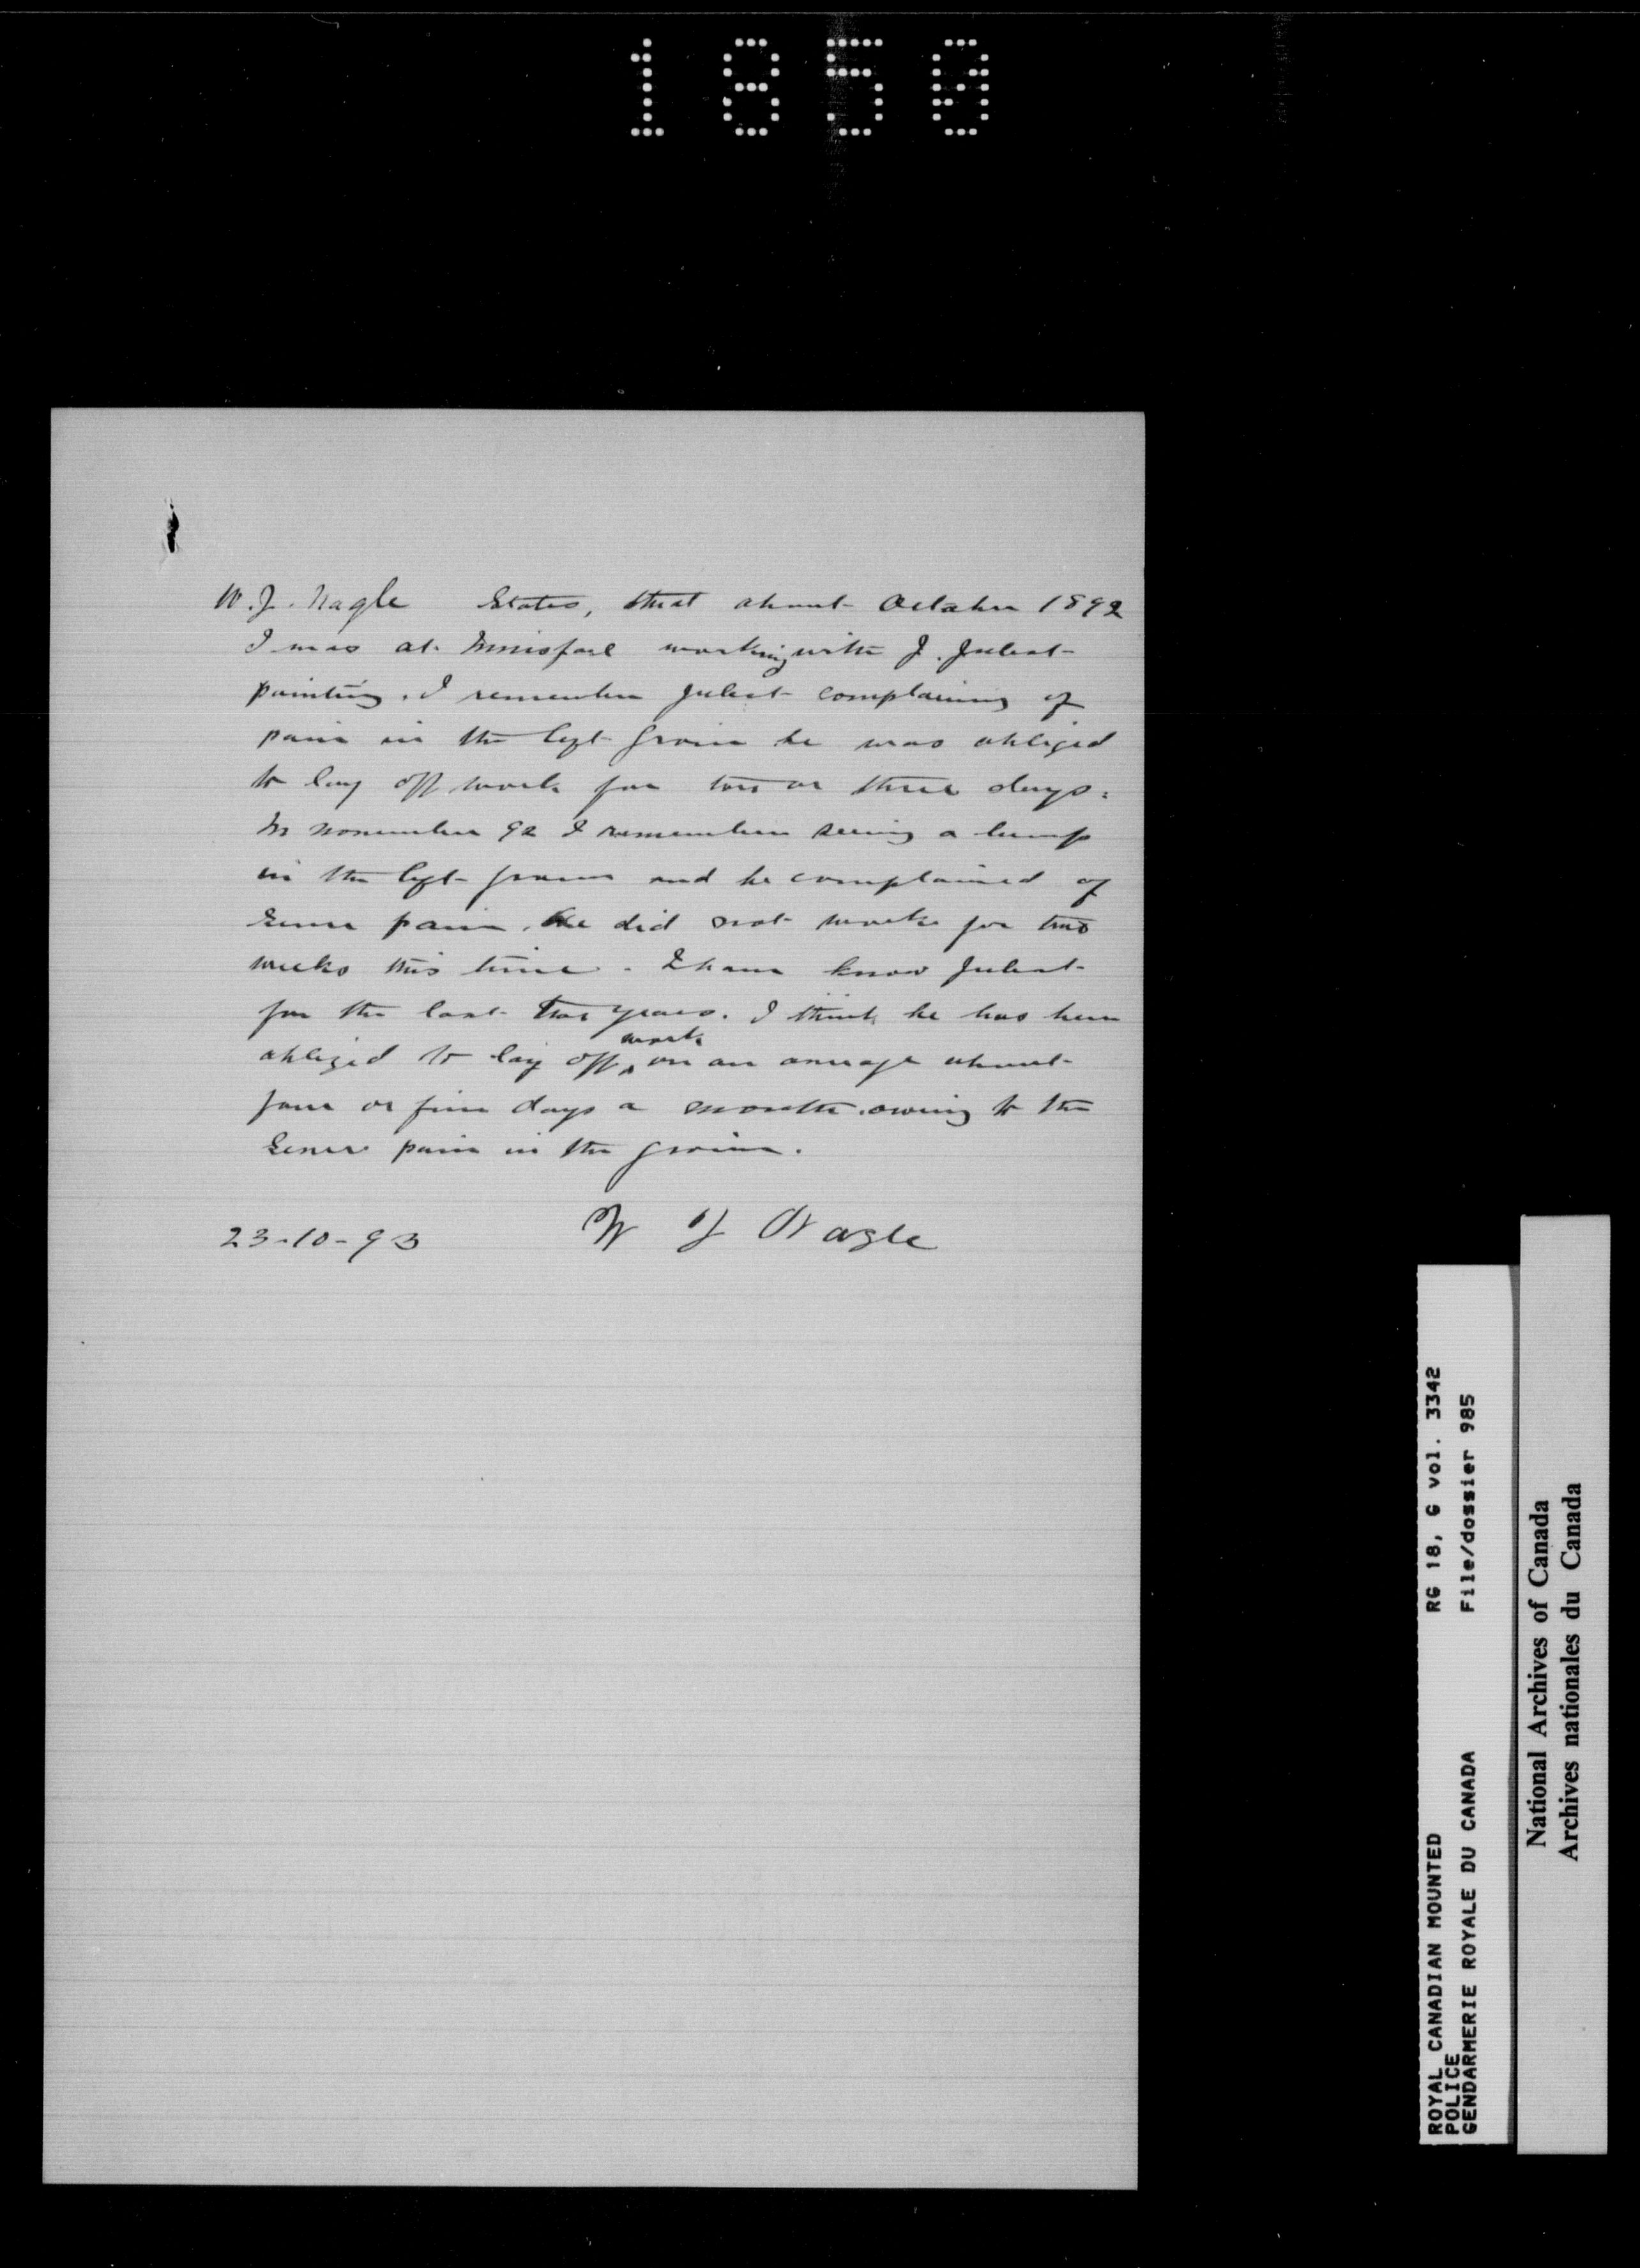 1850
W. J. Nagle States, that about October 1892
I was at Innisfail working with J. Juliat
painting. I remember Juliat complaining of
pain in the left groin he was obliged
to lay off work for two or three days.
In November 92 I remember seeing a lump
in the left groin and he complained of
severe pain. He did not work for two
weeks this time. I have know Juliat
for the last two years. I think he has been
obliged to lay off work on an average about
four or five days a month owing to the
severe pain in the groin.
23-10-93 W J Nagle
ROYAL CANADIAN MOUNTED RG 18, G vol. 3342
POLICE
GENDARMERIE ROYALE DU CANADA File/dossier 985
National Archives of Canada
Archives nationales du Canada